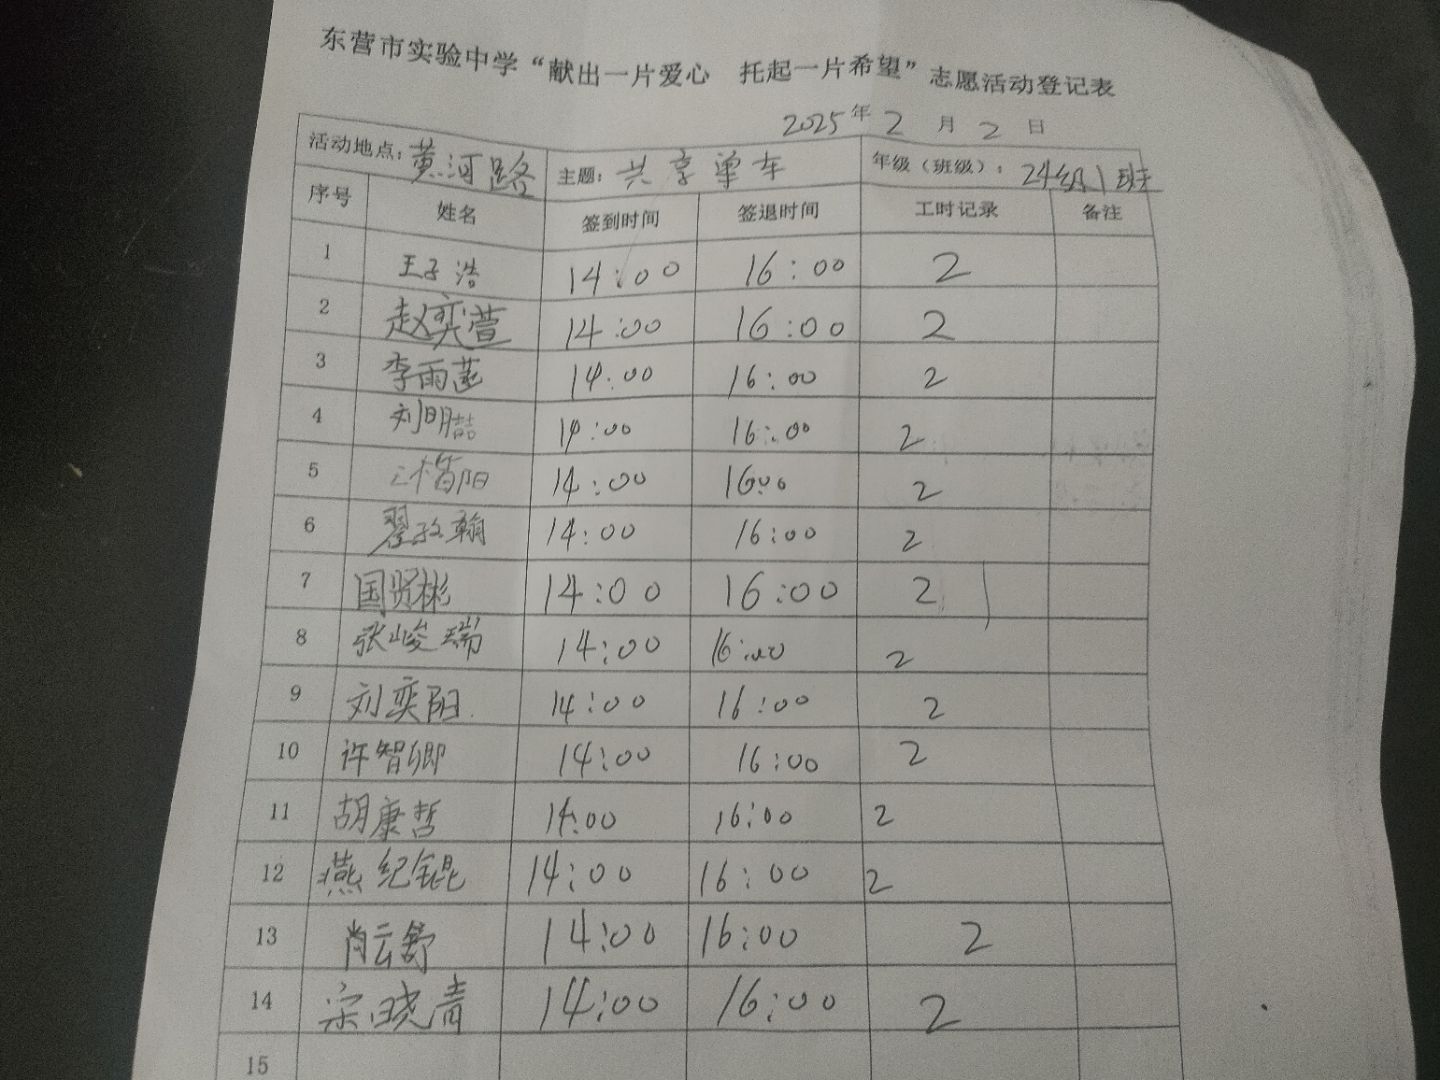 东营市实验中学“献出一片爱心 托起一片希望”志愿活动登记表
2025年2月2日
活动地点：黄河路 主题：共享单车 年级（班级）：24级1班
序号 姓名 签到时间 签退时间 工时记录 备注
1 王子浩 14:00 16:00 2
2 赵奕萱 14:00 16:00 2
3 李雨菡 14:00 16:00 2
4 刘明喆 14:00 16:00 2
5 阳 14:00 16:00 2
6 翟政翰 14:00 16:00 2
7 国贤彬 14:00 16:00 2
8 张峻瑞 14:00 16:00 2
9 刘奕阳 14:00 16:00 2
10 许智卿 14:00 16:00 2
11 胡康哲 14:00 16:00 2
12 燕纪锟 14:00 16:00 2
13 肖云舒 14:00 16:00 2
14 宋晓青 14:00 16:00 2
15